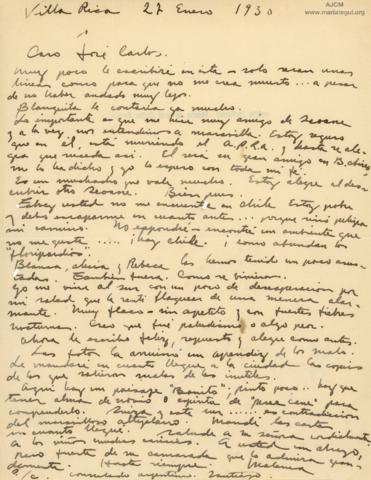 AJCM
www.mariategui.org
Villa Rica 27 Enero 1930
Caro José Carlos.
Muy poco le escribiré en ésta - solo serán unas
líneas como para que no me crea muerto... a pesar
de no haber andado muy lejos.
Blanquita le contaría ya mucho.
Lo importante es que me hice muy amigo de Seoane
y a la vez, nos entendimos a maravilla. Estoy seguro
que en él, está muriendo el A.P.R.A. y hasta se ale-
gra que suceda así. El será un gran amigo en B. Aires
me lo ha dicho y yo lo espero con toda mi fé.
Es un muchacho que vale mucho. Estoy alegre al des-
cubrir otro Seoane. Bien pues.
usted no me en Chile. Estoy pobre
y debo escaparme en cuanto antes... porque sino peligra
mi camino. No expondré - encontré un ambiente que
no me gusta ..... ¡hay Chile! ¡como abundan los
"floripardios"
Blanca, Alicia y Rebeca las hemos tenido un poco asus-
tadas. Como se vinieron.
Yo me vine al sur con un poco de desesperación por
mi salud que la sentí flaquear de una manera alar-
mante. Muy flaco - sin apetito y con fuertes fiebres
nocturnas. Creo que fué paludismo o algo peor.
Ahora le escribo feliz, repuesto y alegre como antes.
Las fotos las arruinó un aprendiz de los malos.
Le mandaré en cuanto llegue a la ciudad las copias
de las que salieron de las inútiles.
Aquí hay un paisaje "bonito", pinto poco.. hay que
tener alma de novio o espíritu de para
comprenderlo. Suiza y este sur ..... es contradicción
del maravilloso altiplano. Mande las cartas
en cuanto llegue. Salude a su señora cordialmente
A los niños muchos cariños. A usted un abrazo,
pero fuerte de su camarada que lo admira gran-
demente. Hasta siempre. Malanca
S/c. consulado argentino. Santiago.